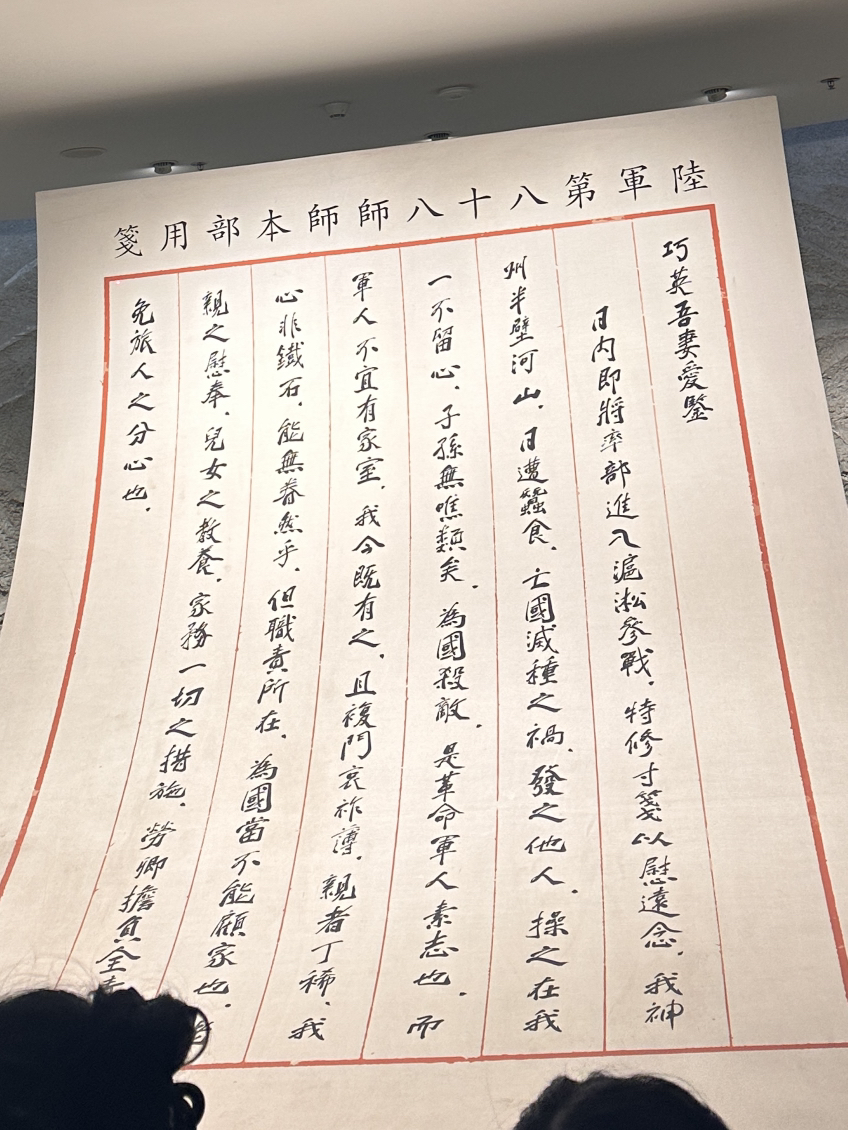 陸軍第八十八師師本部用箋
巧英吾妻愛鑒
日内即將率部進入滬淞參戰．特修寸箋以慰遠念．我神
州半壁河山．日遭蠶食．亡國滅種之禍．發之他人．操之在我
一不留心．子孫無噍類矣．為國殺敵．是革命軍人素志也．而
軍人不宜有家室．我今既有之．且複門衰祚薄．親者丁稀．我
心非鐵石．能無眷然乎．但職責所在．為國當不能顧家也．
親之慰奉．兒女之教養．家務一切之措施．勞卿擔負全
免旅人之分心也．